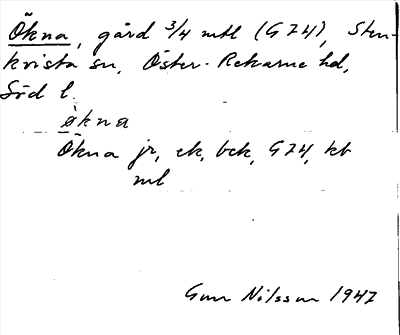 Ökna, gård 3/4 mtl (G74), Sten-
kvista sn, Öster-Rekarne hd,
Söd l.
ø̀kna
Ökna jr, ek, bek, G74, kb
ml
Gun Nilsson 1947